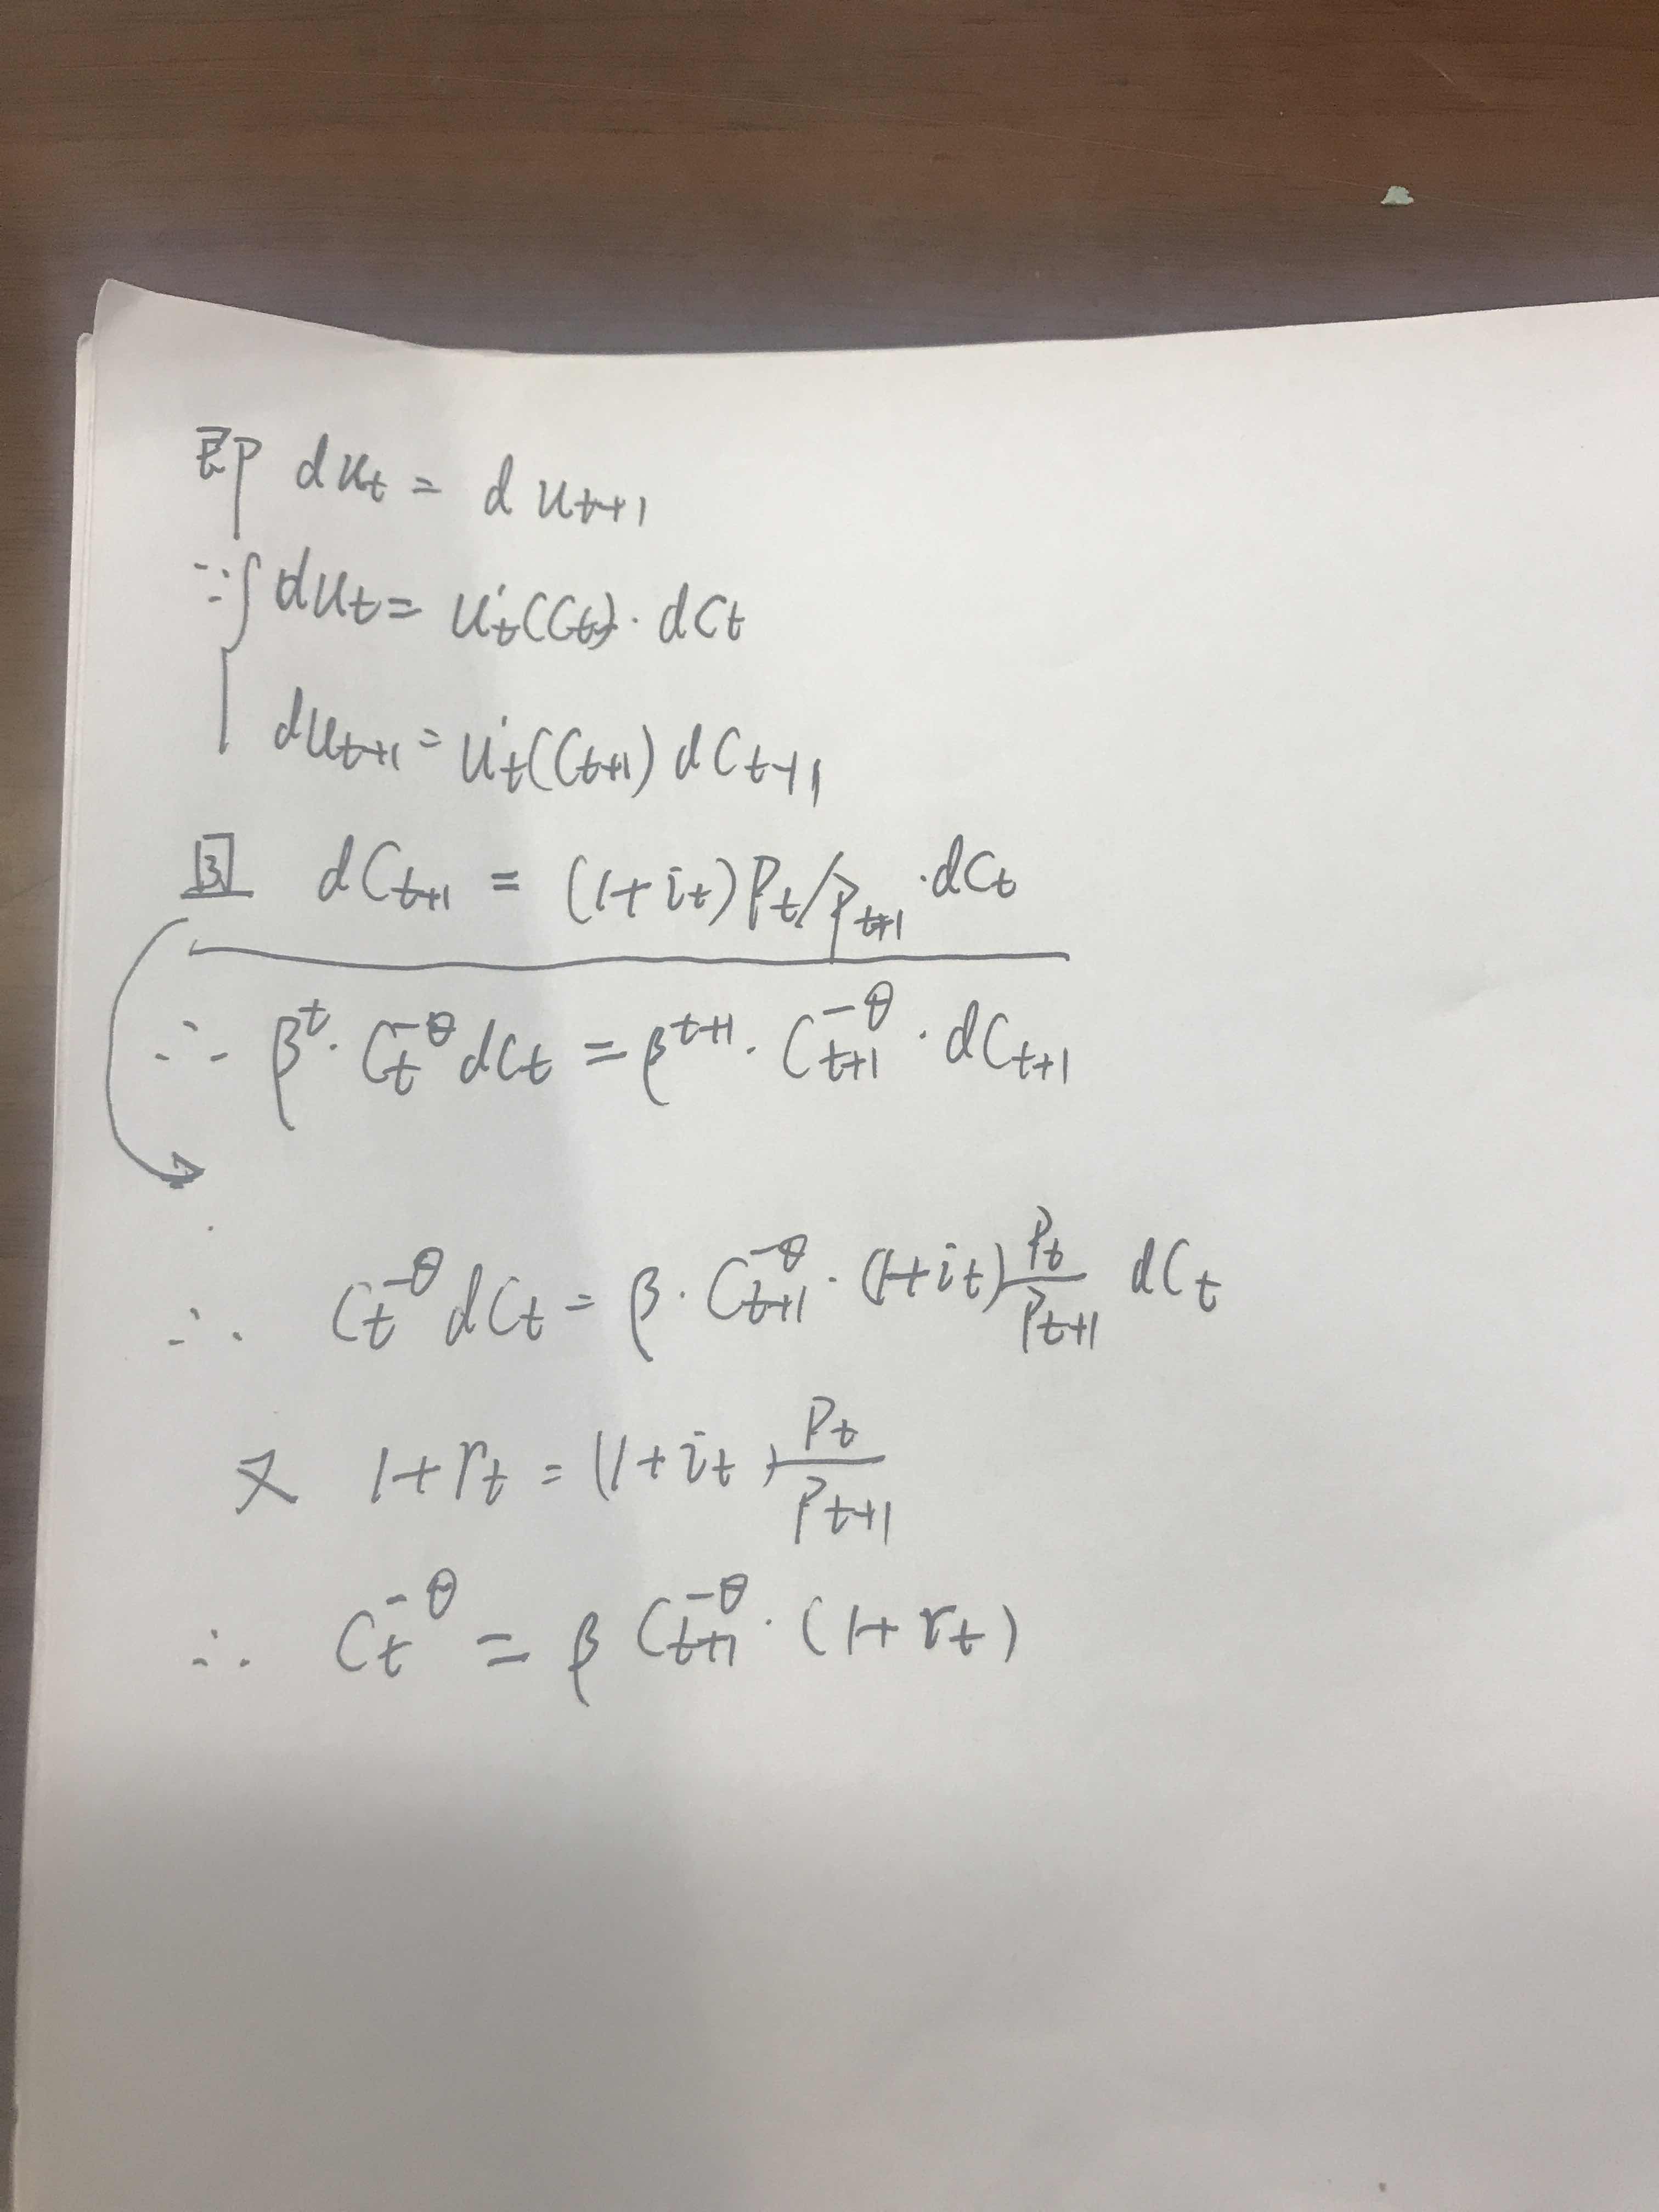 即 du_t = du_{t+1}
∵ { du_t = u'_t(C_t)·dC_t
du_{t+1} = u'_t(C_{t+1}) dC_{t+1}
dC_{t+1} = (1+i_t)P_t/P_{t+1}·dC_t
∴ β^t·C_t^{-θ} dC_t = β^{t+1}·C_{t+1}^{-θ}·dC_{t+1}
∴ C_t^{-θ} dC_t = β·C_{t+1}^{-θ}·(1+i_t) P_t/P_{t+1} dC_t
又 1+r_t = (1+i_t) P_t/P_{t+1}
∴ C_t^{-θ} = β C_{t+1}^{-θ}·(1+r_t)